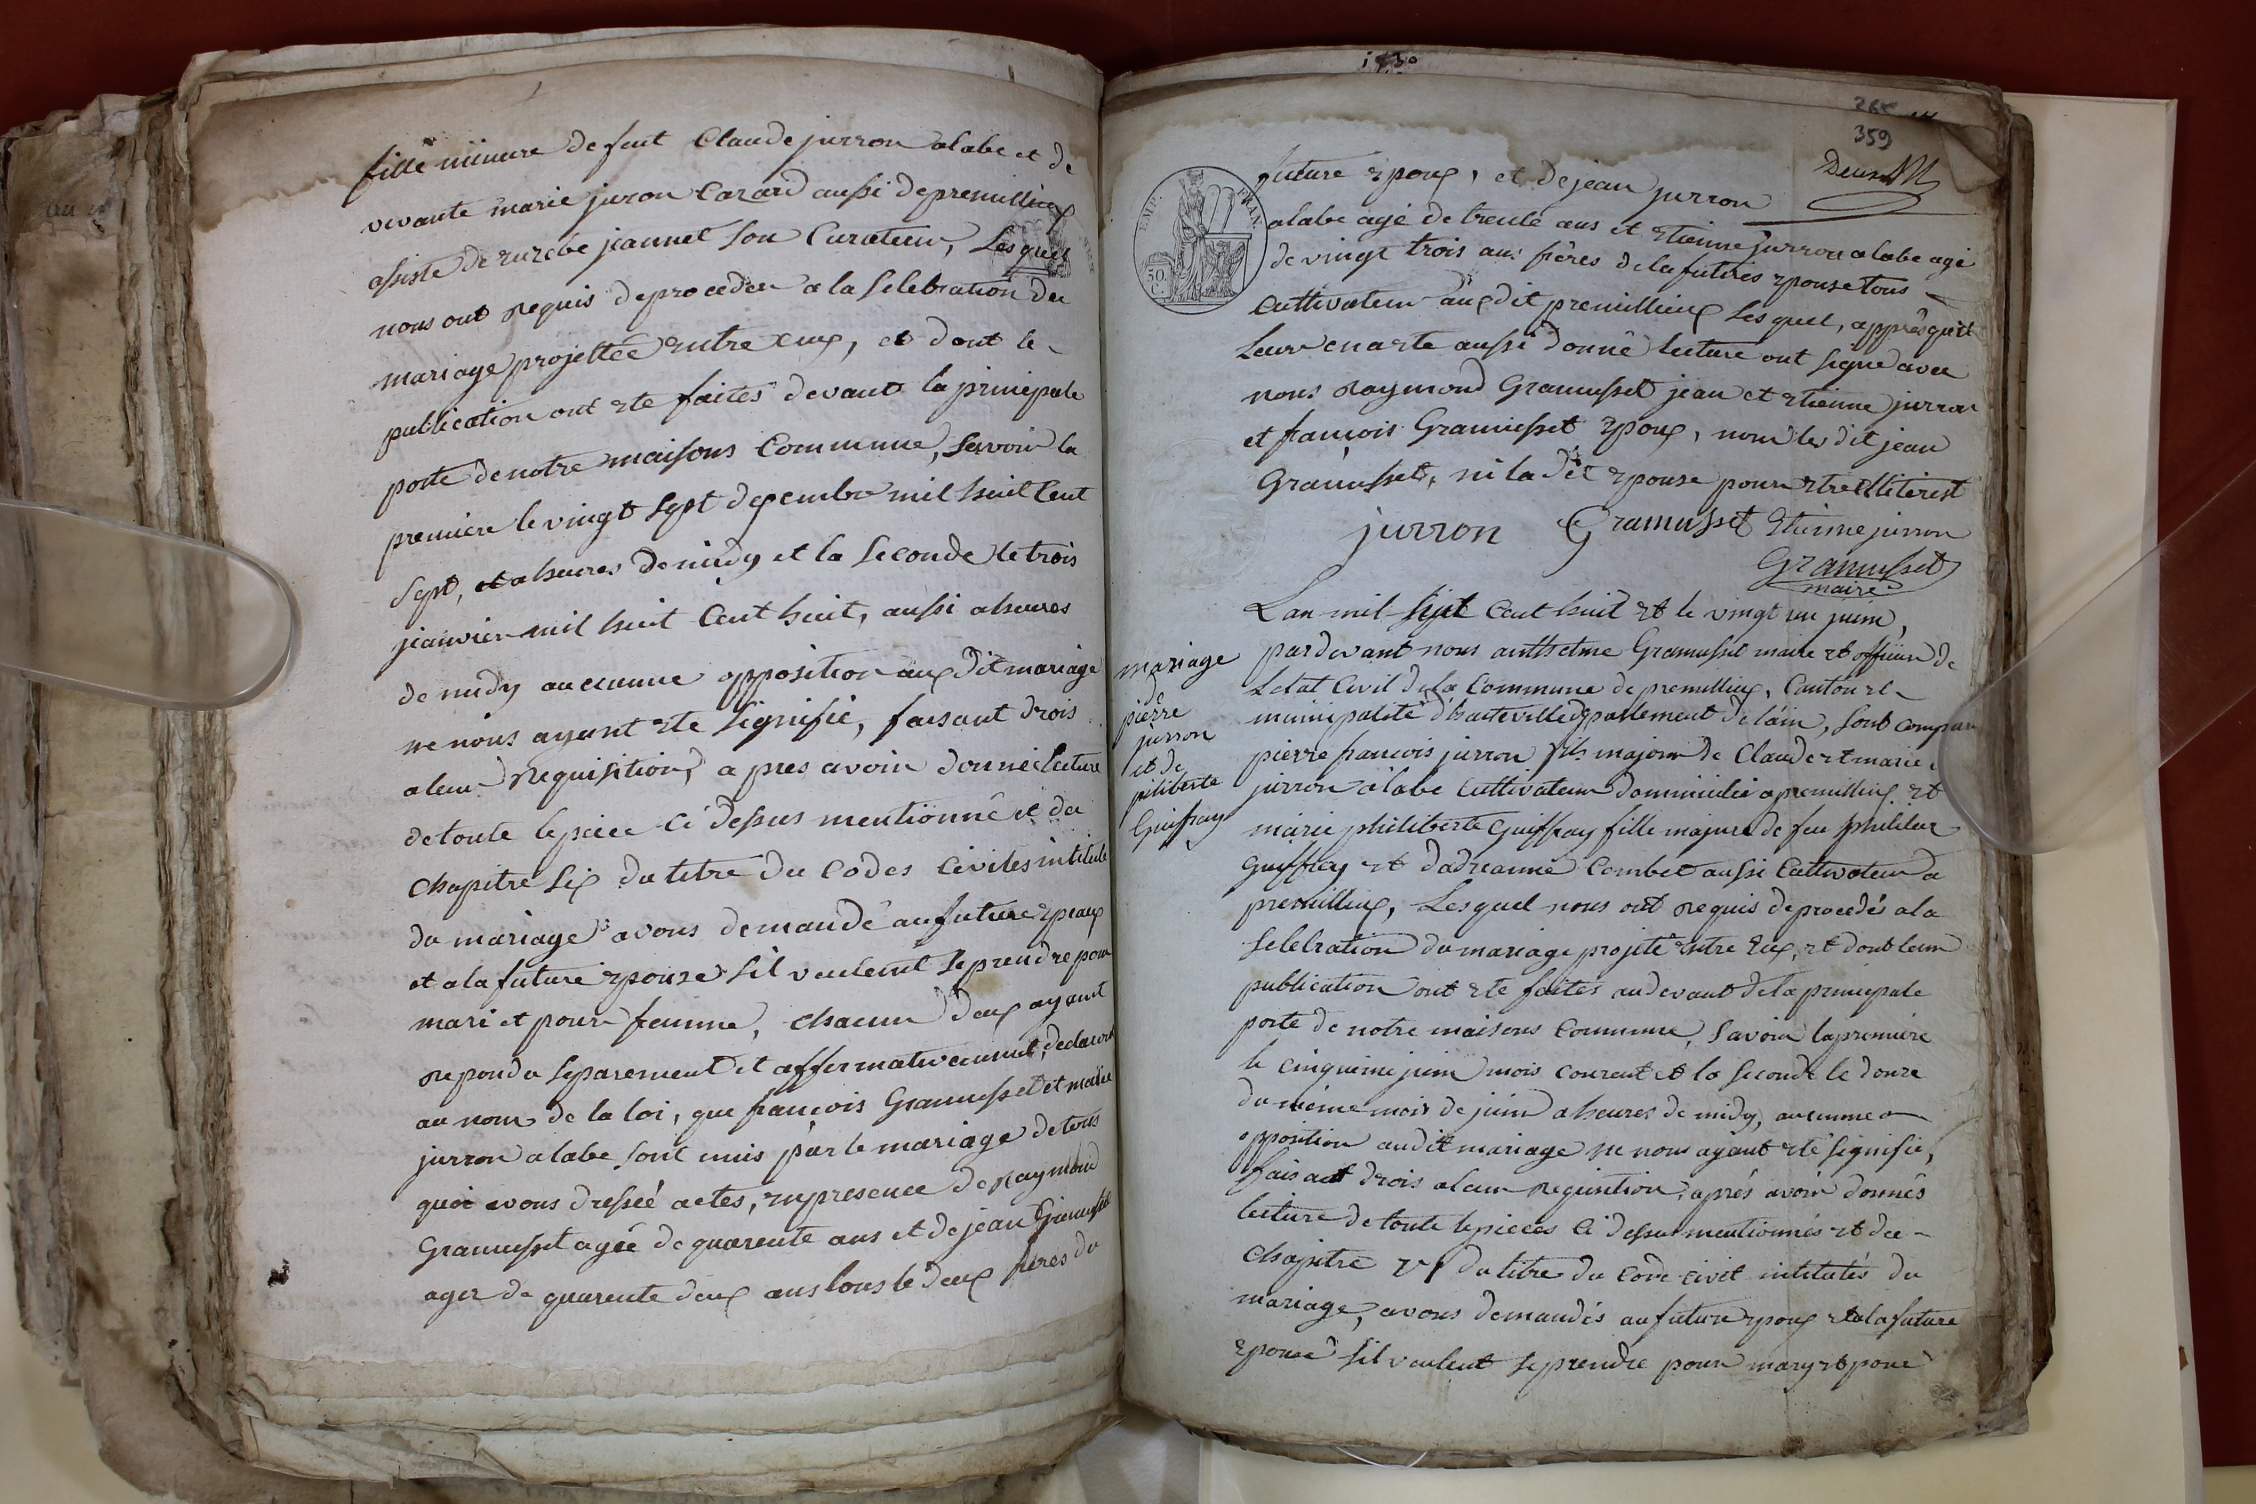 fille mineure de feut Claude jurron alabe et de
vivante marie juron Carard aussi de premillieux
assiste de eurebe jeannet son Curateur, Lesquel
nous ont requis de proceder a la selebration du
mariage projettée entre eux, et dont le
publication ont ete faites devant la principale
porte de notre maisons Commune, savoir la
premiere le vingt sept decembre mil huit Cent
sept, et a heures de midy et la seconde le trois
jeanvier mil huit Cent huit, aussi a heures
de midy aucunne opposition aux dit mariage
ne nous ayant ete signifié, faisant drois
a leur requisition, a pres avoir donné lecture
de toute le piece ci dessus mentionné et du
Chapitre six du titre du Codes Civiles intitule
du mariage avons demandé au future epoux
et a la future epouse sil veulent se prendre pour
mari et pour femme, chacun deux ayant
repondu separement et affermativement, declarons
au nom de la loi, que françois Gramusset et marie
jurron alabe sont unis par le mariage de tous
quoi avons dressé actes, en presence de Raymond
Gramusset agée de quarente ans et de jean Gramusset
ager de quarente deux ans tous le deux freres du
1830
265
359
Deux
EMP. FRAN.
50 C.
future epoux, et de jean jurron
alabe agé de trente ans et etienne jurron alabe agé
de vingt trois ans frères de la futures epouse tous
cultivateur aux dit premillieux Lesquel, apprés qu'il
Leur en a ete aussi donné lecture ont signé avec
nous Raymond Gramusset jean et etienne jurron
et françois Gramusset epoux, nom les dit jean
Gramusset, ni la dit epouse pour etre elliterest
jurron Gramusset Etienne jurron
Gramusset
maire
mariage
de
pierre
jurron
et de
piliberte
Guiffray
Lan mil huit Cent huit et le vingt un juin,
pardevant nous anthelme Gramusset maire et officier de
Letat Civil de la Commune de premillieux, Canton et
municipalité d'hauteville departement de l'ain, sont compar
pierre francois jurron fils majour de Claude et marie
jurron alabe Cultivateur dommicilié a premillieux et
marie philiberte Guiffray fille majure de feu philibert
Guiffray et dadrianne Combet aussi Cultivateur a
premillieux, Lesquel nous ont requis de procedés a la
selebration du mariage projeté entre eux, et dont leur
publication ont ete faites au devant de la principale
porte de notre maisons Commune, savoir la premiere
le cinquieme juin mois courent et la seconde le douze
du même mois de juin a heures de midy, aucunne
opposition audit mariage ne nous ayant eté signifié,
faisant drois a leur requisition, aprés avoir donnés
lecture de toute le pieces ci dessu mentionnés et du
Chapitre VI du titre du Code civil intitulés du
mariage, avons demandés au futur epoux et a la future
epouse sil veulent se prendre pour mary et pour